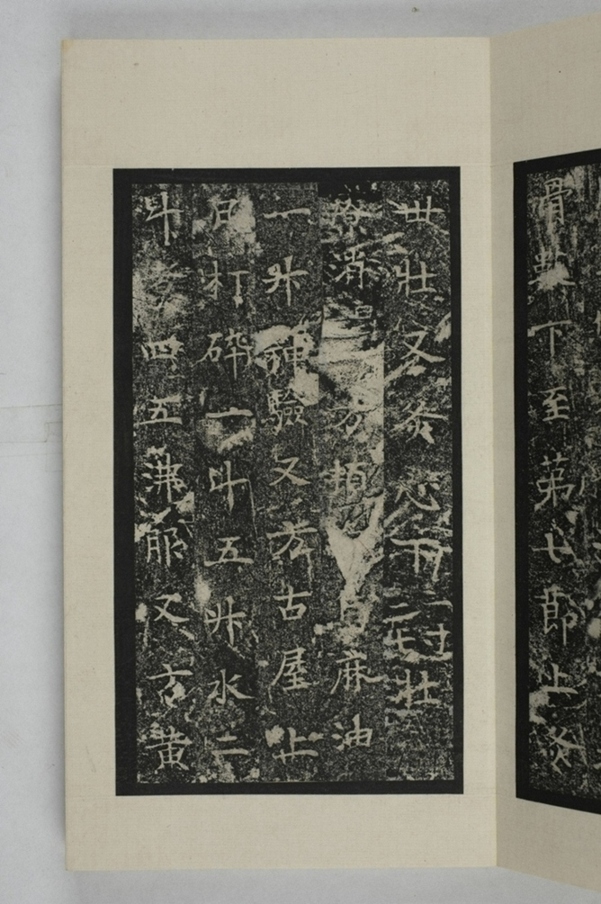 骨數下至第七節上灸
丗壯又灸心下二寸七壯
療消渴方頓麻油
一升神驗又方古屋上
瓦打碎一斗五升水二
斗煮四五沸服又黃